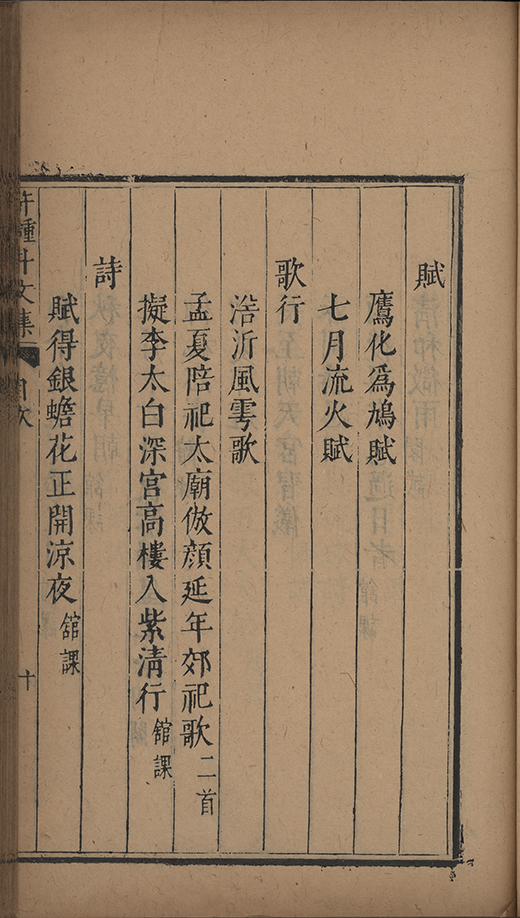 賦
鷹化為鳩賦
七月流火賦
歌行
浩沂風雩歌
孟夏陪祀太廟倣顏延年郊祀歌二首
擬李太白深宮高樓入紫清行舘課
詩
賦得銀蟾花正開涼夜舘課
許鍾斗文集 目次 十